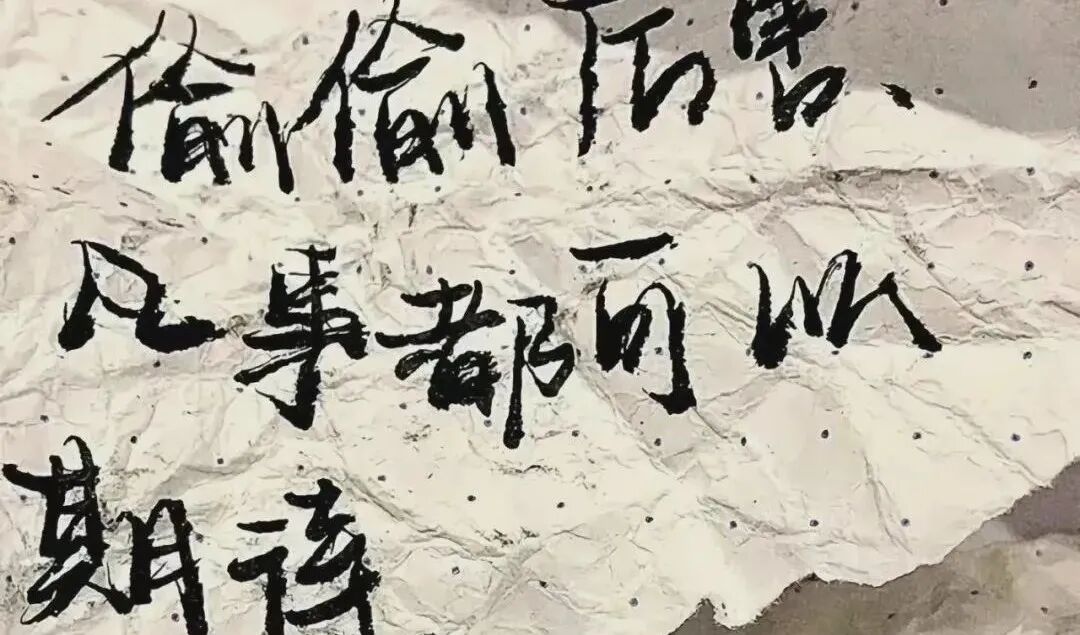 偷偷厉害、
凡事都可以
期待